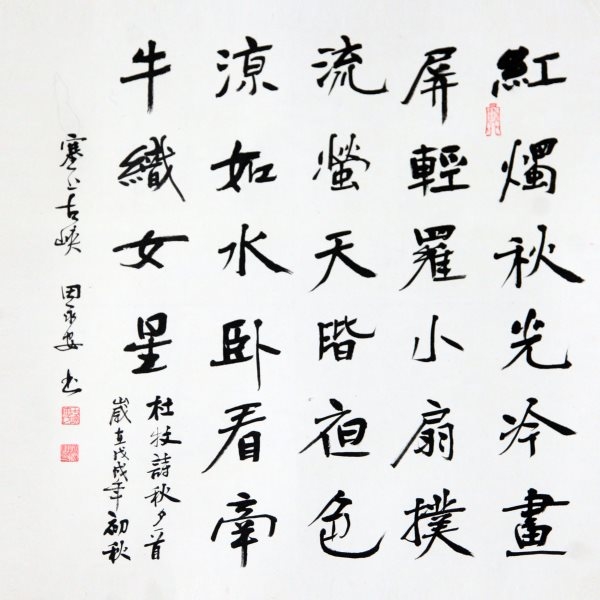 紅燭秋光冷畫
屏輕羅小扇撲
流螢天階夜色
涼如水臥看牽
牛織女星
杜牧詩秋夕一首
歲在戊戌年初秋
塞上古峽 田永安 书